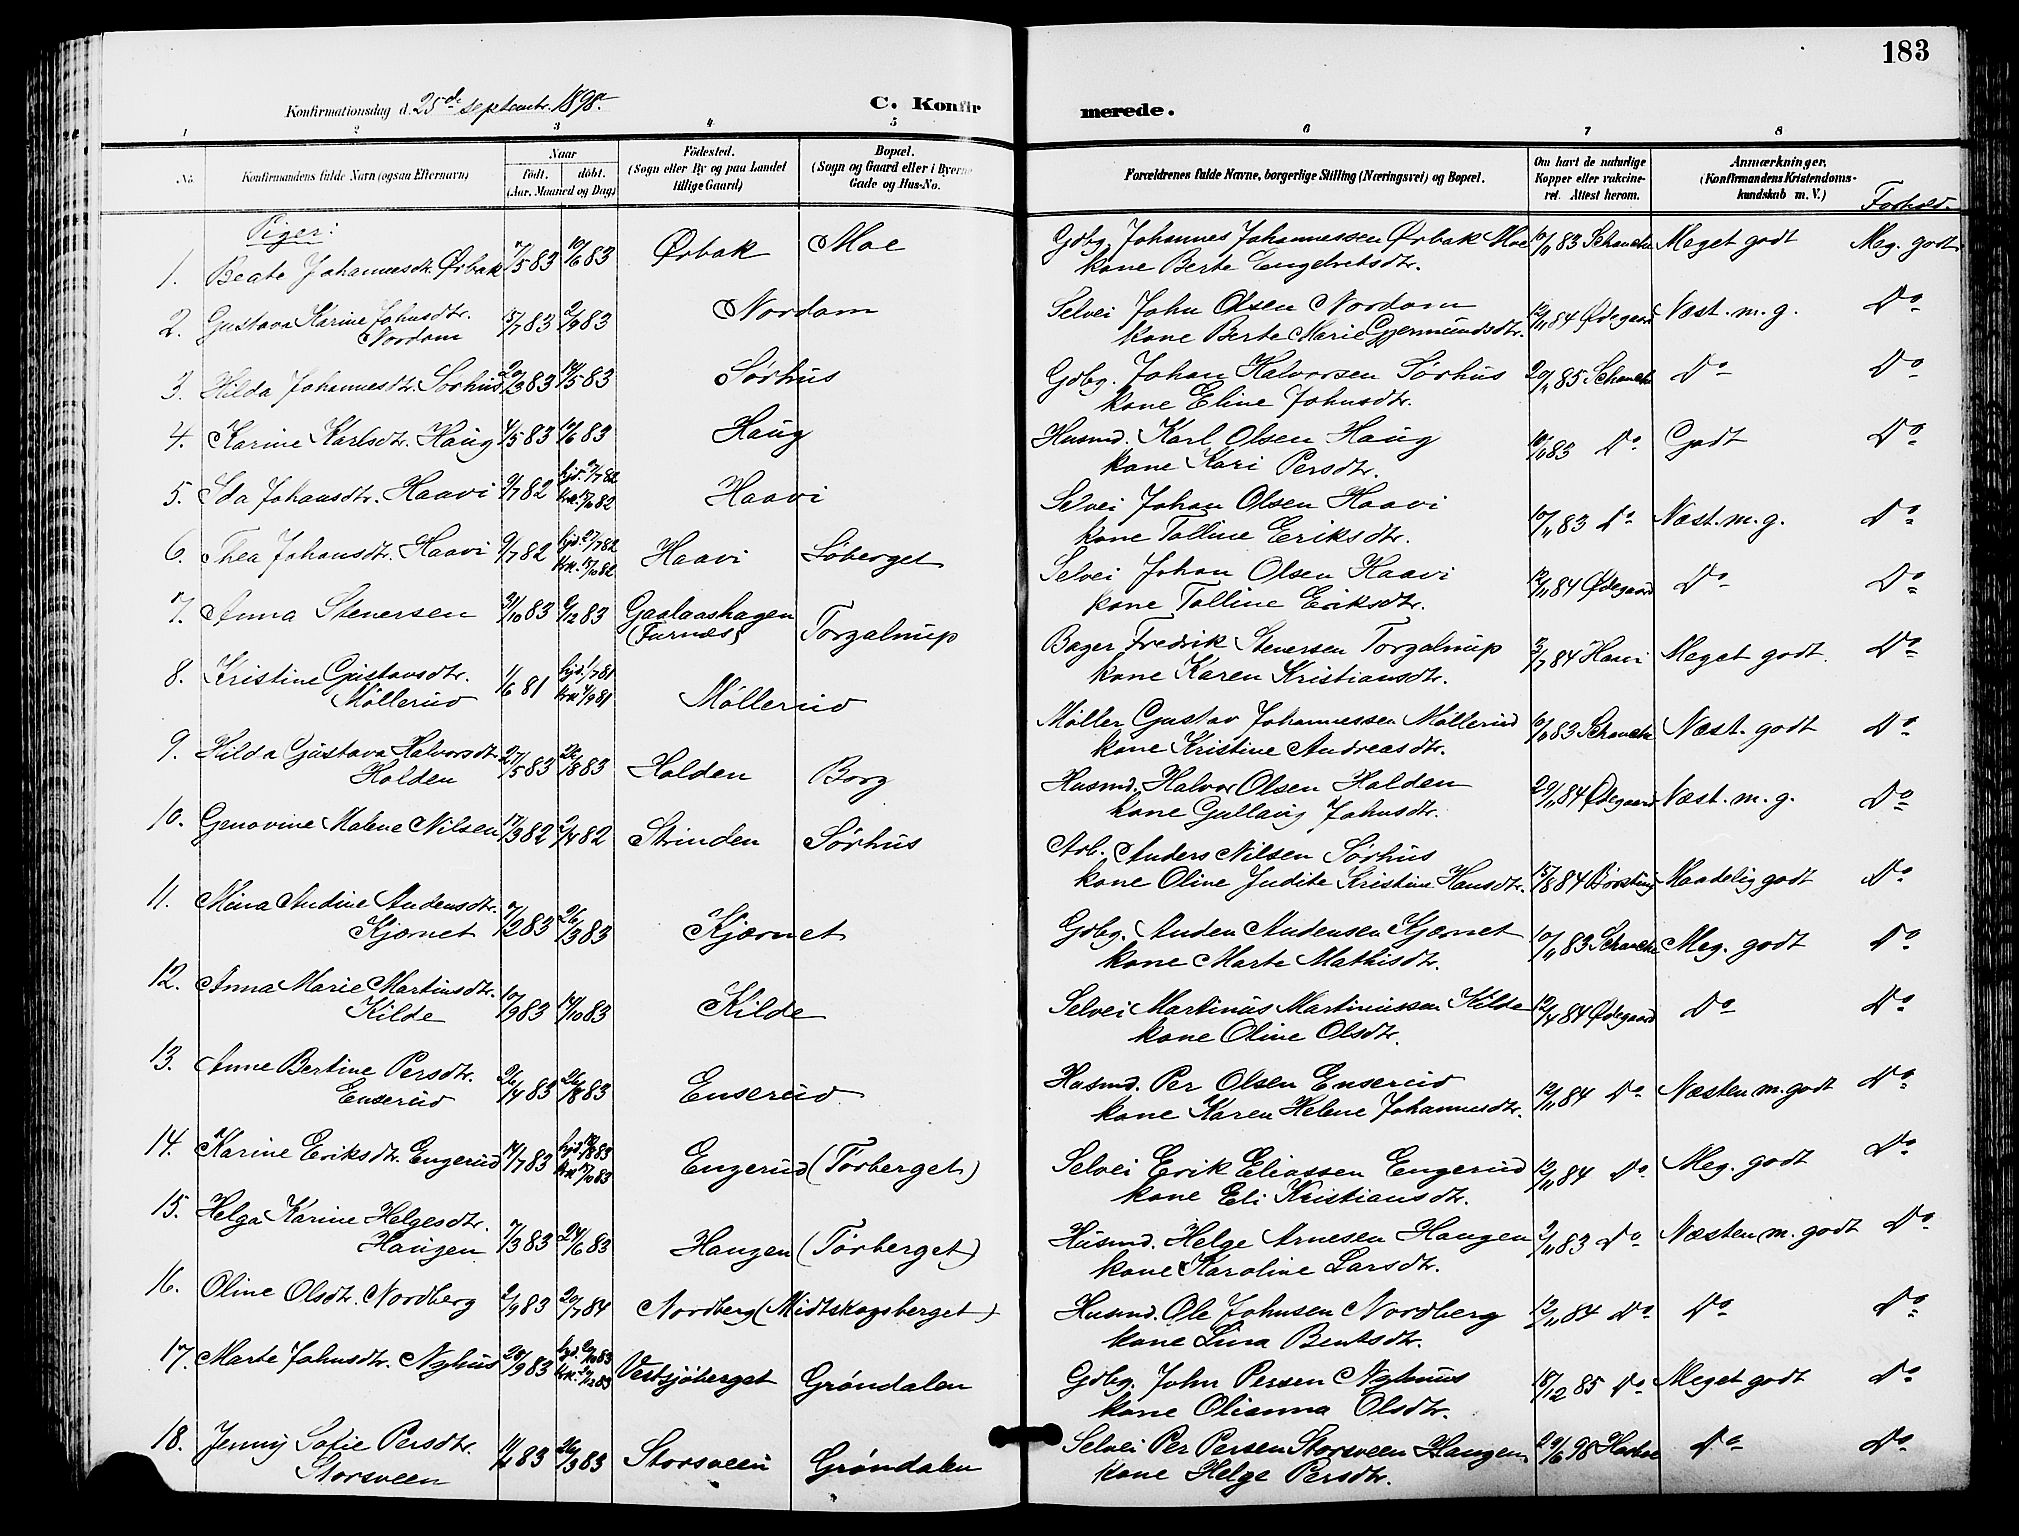 183
Konfirmationsdag d. 25de septembr. 1898.
C. Konfirmerede.
1 2 3 4 5 6 7 8
No.
Konfirmandens fulde Navn (ogsaa Efternavn)
Naar
födt. döbt.
(Aar, Maaned og Dag)
Födested.
(Sogn eller By og paa Landet tillige Gaard)
Bopæl.
(Sogn og Gaard eller i Byerne Gade og Hus-No.
Forældrenes fulde Navne, borgerlige Stilling (Næringsvei) og Bopæl.
Om havt de naturlige Kopper eller vaccineret. Attest herom.
Anmærkninger.
(Konfirmandens Kristendomskundskab m. V.)
Forhold.
Piger:
1. Beate Johannesdtr. Ørbak 17/5 83 10/6 83 Ørbak Moe Gdbg. Johannes Johannessen Ørbak Moe 10/11 83 Schancke Meget godt Meg. godt
kone Berte Engebretsdtr.
2. Gustava Karine Johnsdtr. 15/7 83 2/9 83 Nordom Selvei John Olsen Nordom 12/11 84 Ødegaard Næst. m. g. Do
Nordom kone Berte Marie Gjermundsdtr.
3. Hilda Johannesdtr. Sørhus 20/3 83 14/5 83 Sørhus Gdbg. Johan Halvorsen Sørhus 20/11 85 Schancke Do Do
kone Eline Johnsdtr.
4. Karine Karlsdtr. Haug 4/5 83 10/6 83 Haug Husmd. Karl Olsen Haug 10/11 83 Do Godt Do
kone Kari Persdtr.
5. Ida Johansdtr. Haavi 9/7 82 Haavi Selvei Johan Olsen Haavi 10/11 83 Do Næst. m. g. Do
kone Tolline Eriksdtr.
6. Thea Johansdtr. Haavi 9/7 82 Haavi Søberget Selvei Johan Olsen Haavi 12/11 84 Ødegaard Do Do
kone Tolline Eriksdtr.
7. Anna Stenersen 31/10 83 9/12 83 Gaalaashagen Torgalsrup Bager Fredrik Stenersen Torgalsrup 3/7 84 Haavi Meget godt. Do
(Furnæs) kone Karen Kristiansdtr.
8. Kristine Gustavsdtr. 1/6 81 Møllerud Møller Gustav Johannessen Møllerud 10/11 83 Schancke Næst. godt Do
Møllerud kone Kristine Andreasdtr.
9. Hilda Gustava Halvorsdtr. 27/5 83 26/8 83 Holden Borg Husmd. Halvor Olsen Holden 29/11 84 Ødegaard Næst. m. g. Do
Holden kone Gullaug Johnsdtr.
10. Genovine Malene Nilsen 17/3 82 2/4 82 Strinden Sørhus Arb. Anders Nilsen Sørhus 15/8 84 Børsting Maadelig godt Do
kone Oline Judite Kristine Hansdtr.
11. Mina Audine Audensdtr. 7/2 83 26/3 83 Kjærnet Gdbg. Auden Audensen Kjærnet 10/11 83 Schancke Meg. godt Do
Kjærnet kone Marte Mathisdtr.
12. Anna Marie Martinsdtr. 10/9 83 14/10 83 Kilde Selvei Martinus Martinussen Kilde 12/11 84 Ødegaard Do Do
Kilde kone Oline Olsdtr.
13. Anne Bertine Persdtr. 26/4 83 26/8 83 Enserud Husmd. Per Olsen Enserud 12/11 84 Do Næsten m. godt Do
Enserud kone Karen Helene Johannesdtr.
14. Karine Eriksdtr. Engerud 14/7 83 Engerud (Tørberget) Selvei Erik Eliassen Engerud 12/11 84 Do Meg. godt Do
kone Eli Kristiansdtr.
15. Helga Karine Helgesdtr. 7/3 83 24/6 83 Haugen (Tørberget) Husmd. Helge Arnesen Haugen 9/11 83 Do Næsten m. godt Do
Haugen kone Karoline Larsdtr.
16. Oline Olsdtr. Nordberg 2/9 83 20/7 84 Nordberg (Midtskogsberget) Husmd. Ole Johnsen Nordberg 12/11 84 Do Do Do
kone Lina Bentsdtr.
17. Marte Johnsdtr. Nyhus 20/9 83 Vestsjøberget Grøndalen Gdbg. John Persen Nyhuus 18/12 85 Do Meget godt Do
kone Olianna Olsdtr.
18. Jenny Sofie Persdtr. 26/3 83 Storsveen Grøndalen Selvei Per Persen Storsveen Haugen 29/6 98 Do Do
Storsveen kone Helge Persdtr.